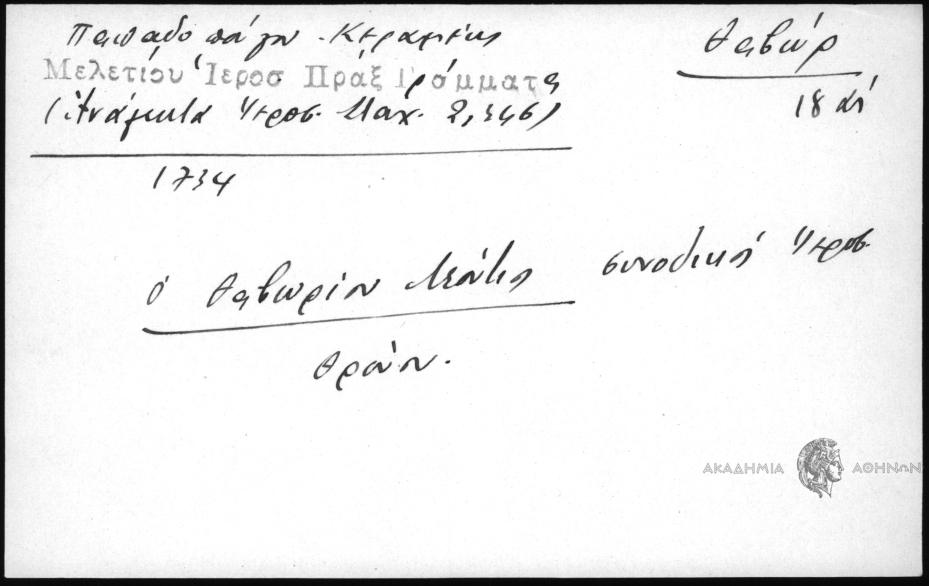 Παπαδοπούλου - Κεραμέως
Θαβώρ
Μελετίου Ἱεροσ Πράξ Γράμματα
(Ἀνάλεκτα Ἱεροσ. Σταχ. 2, 346)
18 αἰ
1734
ὁ Θαβωρίου Λεόντιος συνοδικός Ἱεροσ.
θρόνου.
ΑΚΑΔΗΜΙΑ ΑΘΗΝΩΝ